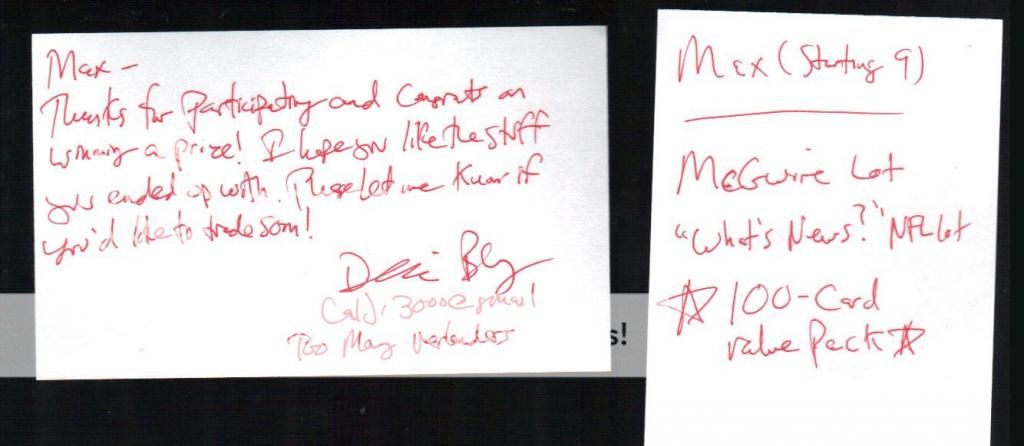 Max -
Thanks for Participating and Congrats on
winning a prize! I hope you like the stuff
you ended up with. Please let me know if
you'd like to trade soon!
Too Many
s!
Max (Starting 9)
McGwire Lot
"What's News?" NFL Lot
☆ 100-Card
value Pack ☆